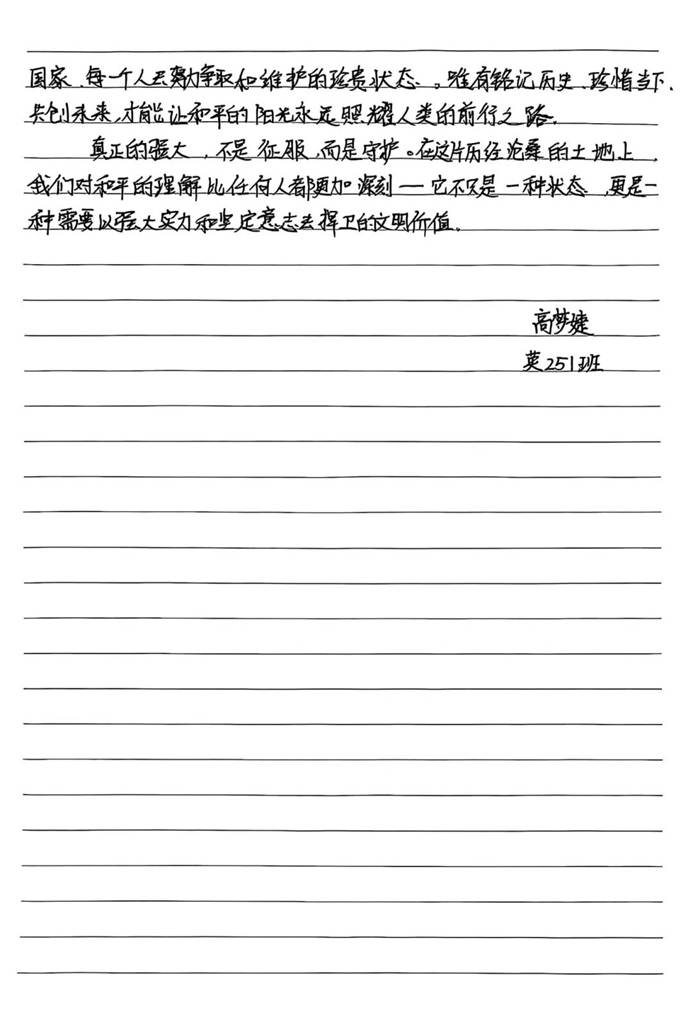 国家、每个人去努力争取和维护的珍贵状态。唯有铭记历史、珍惜当下、
共创未来，才能让和平的阳光永远照耀人类的前行之路。
真正的强大，不是征服，而是守护。在这片历经沧桑的土地上，
我们对和平的理解比任何人都更加深刻——它不只是一种状态，更是一
种需要以强大实力和坚定意志去捍卫的文明价值。
高梦婕
英251班